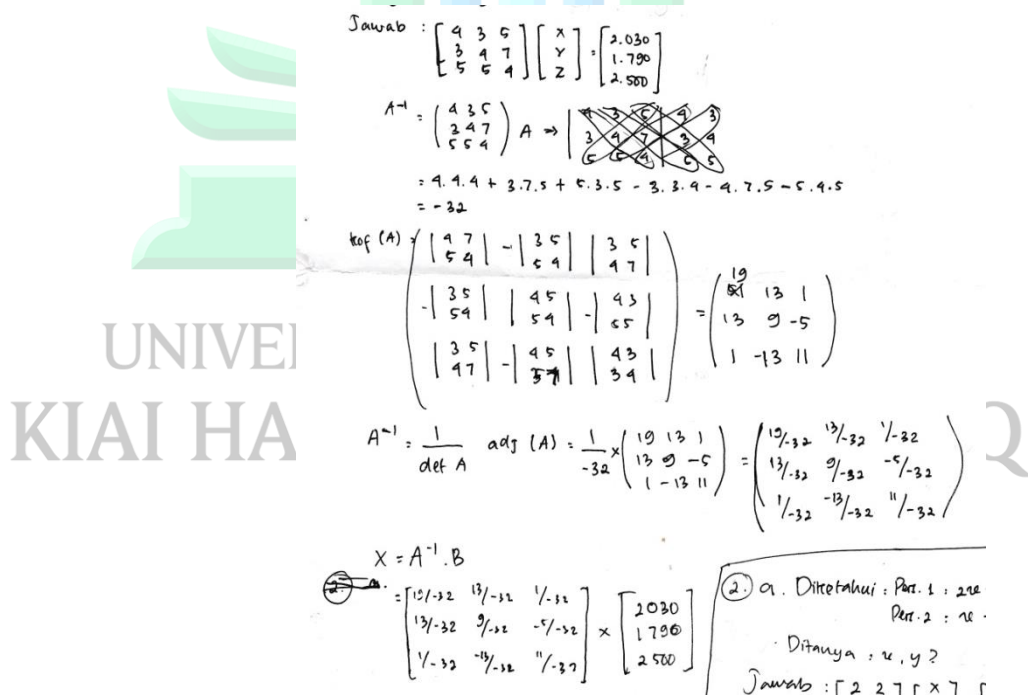 Jawab : [4 3 5 / 3 4 7 / 5 5 4] [X / Y / Z] = [2.030 / 1.790 / 2.500]
A⁻¹ = (4 3 5 / 3 4 7 / 5 5 4) A ⇒ | 4 3 5 | 4 3 / 3 4 7 | 3 4 / 5 5 4 | 5 5
= 4.4.4 + 3.7.5 + 5.3.5 - 3.3.4 - 4.7.5 - 5.4.5
= -32
kof (A) = ( |4 7 / 5 4| -|3 5 / 5 4| |3 5 / 4 7|
-|3 5 / 5 4| |4 5 / 5 4| -|4 3 / 5 5|
|3 5 / 4 7| -|4 5 / 3 7| |4 3 / 3 4| ) = (19 13 1 / 13 9 -5 / 1 -13 11)
A⁻¹ = 1/det A adj (A) = 1/-32 × (19 13 1 / 13 9 -5 / 1 -13 11) = (19/-32 13/-32 1/-32 / 13/-32 9/-32 -5/-32 / 1/-32 -13/-32 11/-32)
X = A⁻¹ . B
= [19/-32 13/-32 1/-32 / 13/-32 9/-32 -5/-32 / 1/-32 -13/-32 11/-32] × [2030 / 1790 / 2500]
2. a. Diketahui : Pers. 1 : 2x
Pers. 2 : x
Ditanya : x, y ?
Jawab : [2 2] [x]
UNIVE
KIAI HA Q